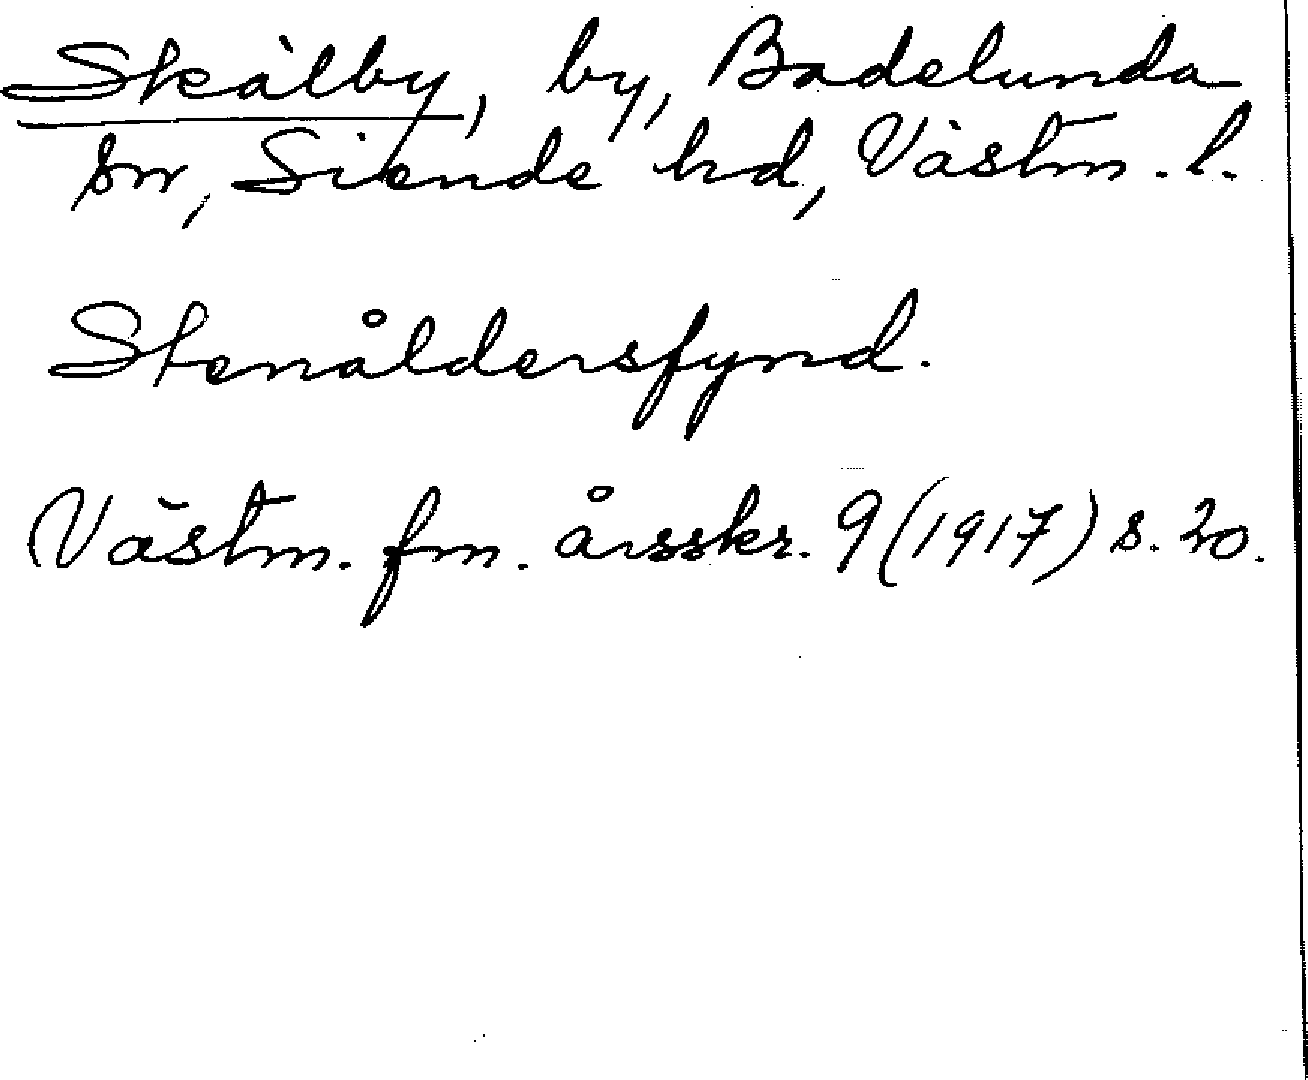 Skälby, by, Badelunda
sn, Siende hd, Västm. l.
Stenåldersfynd.
Västm. fm. årsskr. 9 (1917) s. 20.